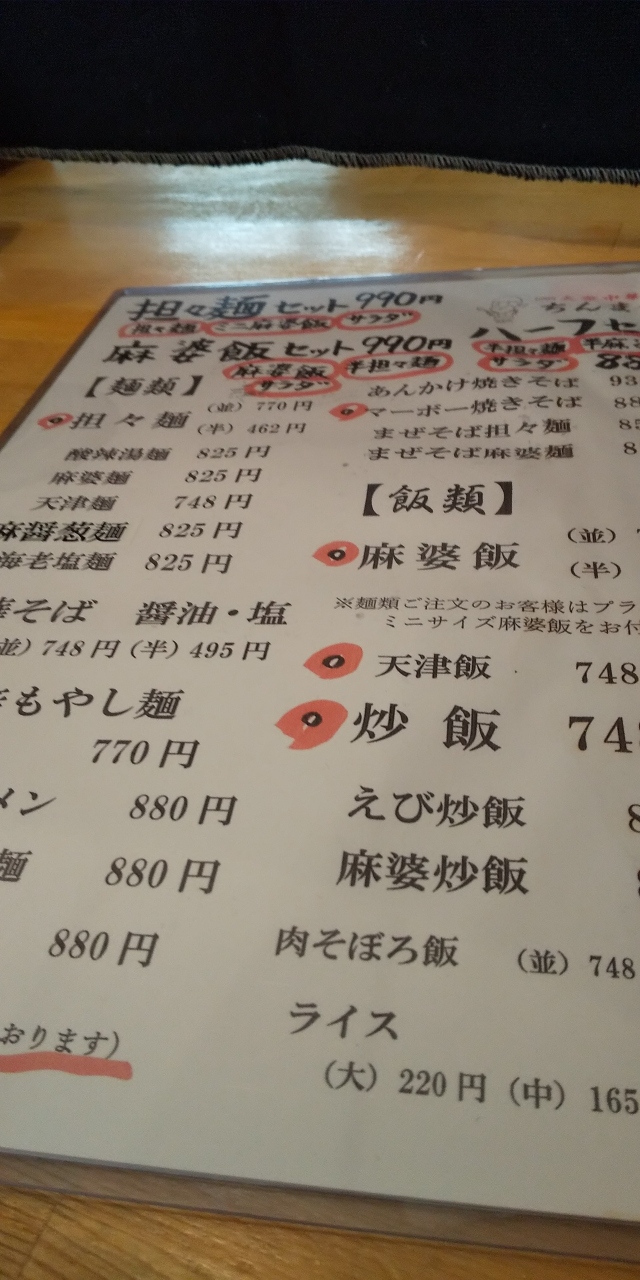 担々麺セット990円
担々麺 ミニ麻婆飯 サラダ
麻婆飯セット990円
麻婆飯 半担々麺
サラダ
ちんま
ハーフセ
半担々麺 半麻
サラダ 88
【麺類】
担々麺 (並) 770円
(半) 462円
酸辣湯麺 825円
麻婆麺 825円
天津麺 748円
麻醤葱麺 825円
海老塩麺 825円
そば 醤油・塩
並) 748円 (半) 495円
もやし麺
770円
メン 880円
麺 880円
880円
おります)
あんかけ焼きそば 93
マーボー焼きそば 88
まぜそば担々麺
まぜそば麻婆麺 8
【飯類】
麻婆飯 (並) 7
(半)
※麺類ご注文のお客様はプラ
ミニサイズ麻婆飯をお付
天津飯 748
炒飯 748
えび炒飯 8
麻婆炒飯
肉そぼろ飯 (並) 748
ライス
(大) 220円 (中) 165